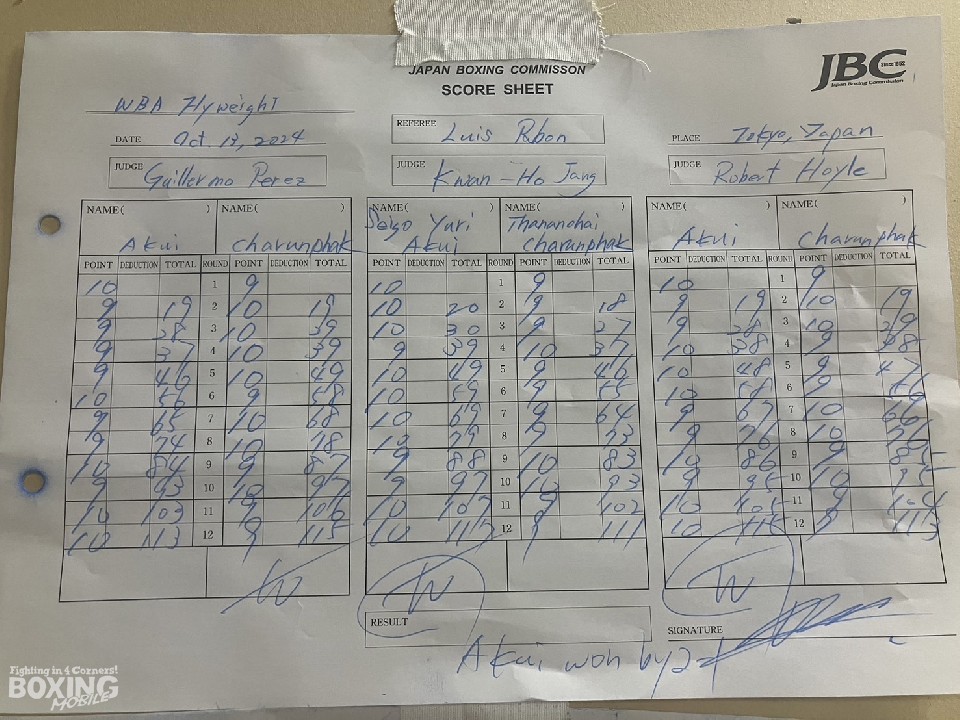 JAPAN BOXING COMMISSON
SCORE SHEET
JBC
Since 1952
Japan Boxing Commission
WBA Flyweight
DATE Oct. 13, 2024
REFEREE Luis Pabon
PLACE Tokyo, Japan
JUDGE Guillermo Perez
JUDGE Kwan-Ho Jang
JUDGE Robert Hoyle
NAME( ) NAME( ) NAME( ) NAME( ) NAME( ) NAME( )
Akui Charunphak Seigo Yuri Akui Thananchai Charunphak Akui Charunphak
POINT DEDUCTION TOTAL ROUND POINT DEDUCTION TOTAL POINT DEDUCTION TOTAL ROUND POINT DEDUCTION TOTAL POINT DEDUCTION TOTAL ROUND POINT DEDUCTION TOTAL
10 1 9 10 1 9 10 1 9
9 19 2 10 19 10 20 2 9 18 9 19 2 10 19
9 28 3 10 39 10 30 3 9 27 9 28 3 10 29
9 37 4 10 39 9 39 4 10 37 10 38 4 9 38
9 46 5 10 49 10 49 5 9 46 10 48 5 9 47
10 56 6 9 58 10 59 6 9 55 10 58 6 9 56
9 65 7 10 68 10 69 7 9 64 9 67 7 10 66
9 74 8 10 78 10 79 8 9 73 9 76 8 10 76
10 84 9 9 87 9 88 9 10 83 10 86 9 9 85
9 93 10 10 97 9 97 10 10 93 9 95 10 10 95
10 103 11 9 106 10 107 11 9 102 10 105 11 9 104
10 113 12 9 115 10 117 12 9 111 10 115 12 9 113
W W W
RESULT
Akui won by 2-1
SIGNATURE
Fighting in 4 Corners!
BOXING
MOBILE